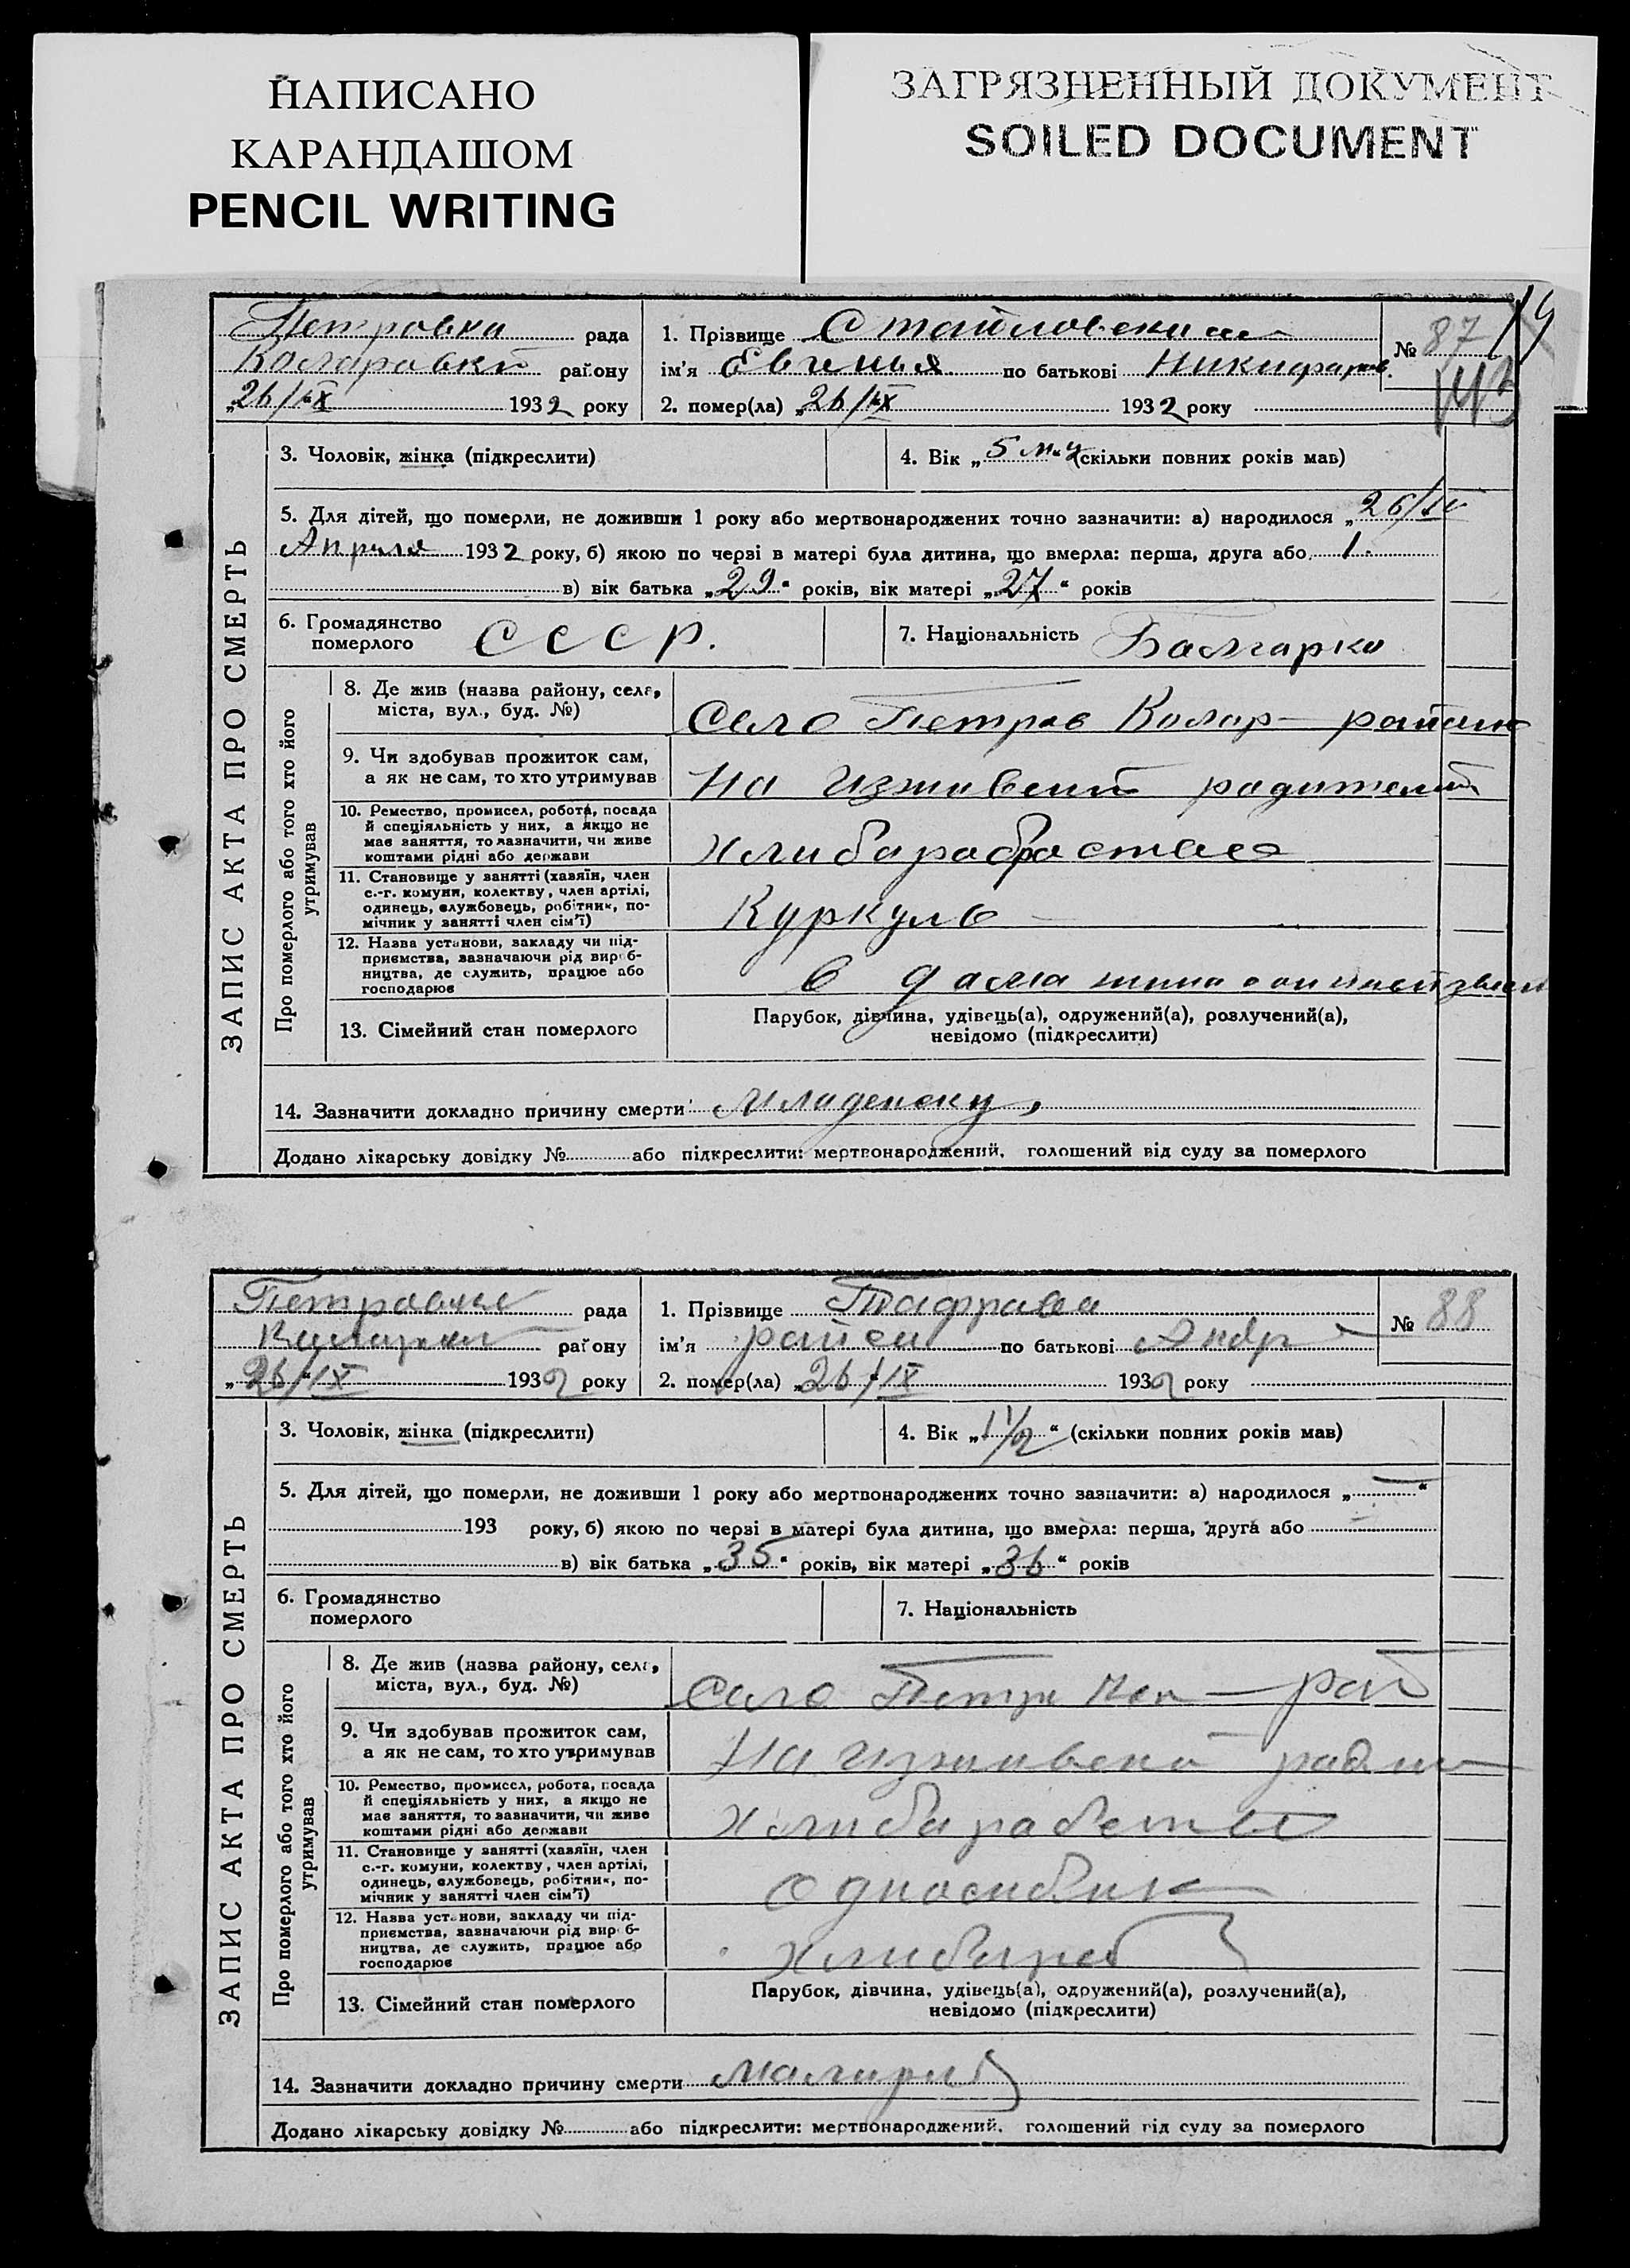 НАПИСАНО
КАРАНДАШОМ
PENCIL WRITING
ЗАГРЯЗНЕННЫЙ ДОКУМЕНТ
SOILED DOCUMENT
ЗАПИС АКТА ПРО СМЕРТЬ
Петровка рада
району
„26/IX 1932 року
1. Прізвище
ім'я Евгенья по батькові Никифоров.
2. помер(ла) „26/IX 1932 року
№ 87
3. Чоловік, жінка (підкреслити)
4. Вік „5 м-ц (скільки повних років мав)
5. Для дітей, що померли, не доживши 1 року або мертвонароджених точно зазначити: а) народилося „26/IV
Апреля 1932 року, б) якою по черзі в матері була дитина, що вмерла: перша, друга або 1.
в) вік батька „29“ років, вік матері „27“ років
6. Громадянство
померлого СССР.
7. Національність Болгарка
Про померлого або того хто його
утримував
8. Де жив (назва району, села,
міста, вул., буд. №)
Село Петров Колар район
9. Чи здобував прожиток сам,
а як не сам, то хто утримував
На иждивении родителей
10. Ремество, промисел, робота, посада
й спеціяльність у них, а якщо не
має заняття, то зазначити, чи живе
коштами рідні або держави
11. Становище у занятті (хазяїн, член
с.-г. комуни, колективу, член артілі,
одинець, службовець, робітник, по-
мічник у занятті член сім'ї)
Куркуль
12. Назва установи, закладу чи під-
приємства, зазначаючи рід вироб-
ництва, де служить, працює або
господарює
в
13. Сімейний стан померлого
Парубок, дівчина, удівець(а), одружений(а), розлучений(а),
невідомо (підкреслити)
14. Зазначити докладно причину смерти
Додано лікарську довідку № або підкреслити: мертвонароджений, голошений від суду за померлого
ЗАПИС АКТА ПРО СМЕРТЬ
рада
району
„26/IX 1932 року
1. Прізвище
ім'я по батькові Андр
2. помер(ла) „26/IX 1932 року
№ 88
3. Чоловік, жінка (підкреслити)
4. Вік „1 1/2“ (скільки повних років мав)
5. Для дітей, що померли, не доживши 1 року або мертвонароджених точно зазначити: а) народилося „—“
193 року, б) якою по черзі в матері була дитина, що вмерла: перша, друга або
в) вік батька „35“ років, вік матері „36“ років
6. Громадянство
померлого
7. Національність
Про померлого або того хто його
утримував
8. Де жив (назва району, села,
міста, вул., буд. №)
Село Петр рай
9. Чи здобував прожиток сам,
а як не сам, то хто утримував
На
10. Ремество, промисел, робота, посада
й спеціяльність у них, а якщо не
має заняття, то зазначити, чи живе
коштами рідні або держави
11. Становище у занятті (хазяїн, член
с.-г. комуни, колективу, член артілі,
одинець, службовець, робітник, по-
мічник у занятті член сім'ї)
12. Назва установи, закладу чи під-
приємства, зазначаючи рід вироб-
ництва, де служить, працює або
господарює
13. Сімейний стан померлого
Парубок, дівчина, удівець(а), одружений(а), розлучений(а),
невідомо (підкреслити)
14. Зазначити докладно причину смерти
Додано лікарську довідку № або підкреслити: мертвонароджений, голошений від суду за померлого